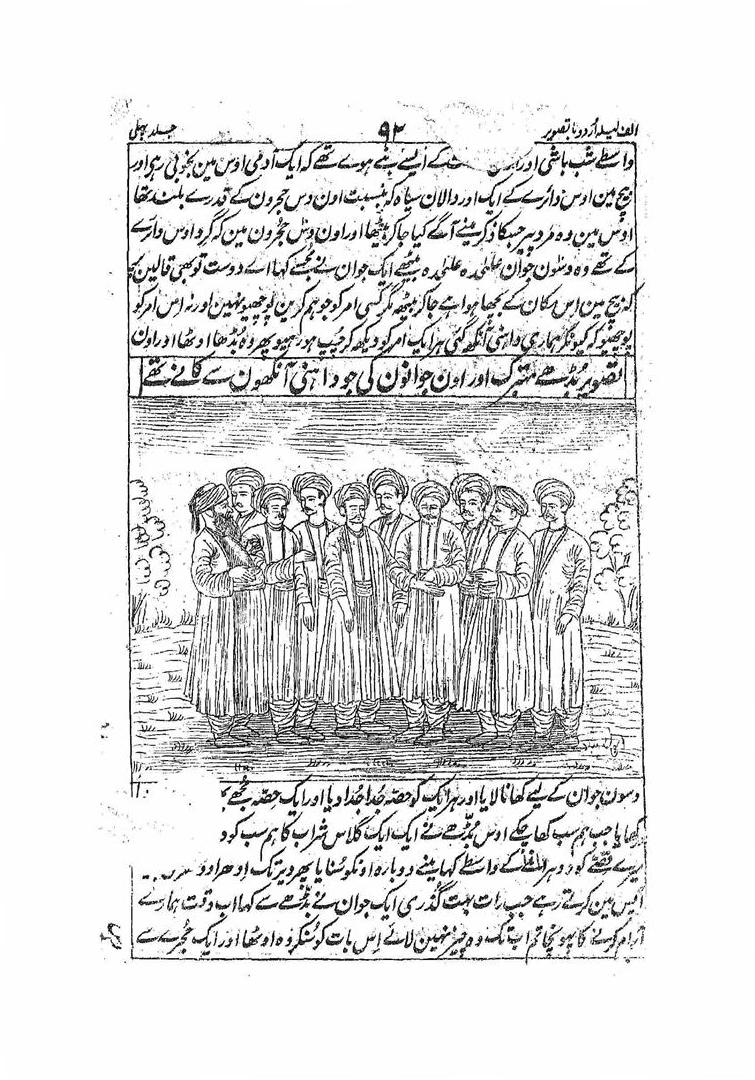 الف لیلہ اُردو با تصویر
۹۲
جلد پہلی
واسطے شب باشی اور کے ایسے بنے ہوے تھے کہ ایک آدمی اوس مین بخوبی رہی اور
بیچ مین اوس دائرے کے ایک اور دالان سیاہ کہ بنسبت اون دس حجرون کے قدرے بلند تھا
اوس مین وہ مرد پیر جسکا ذکر مینے آگے کیا جا کر بیٹھا اور اون دس حجرون مین کہ گرد اوس دائرے
کے تھے وہ دسون جوان علیٰدہ علیٰدہ بیٹھے ایک جوان نے مجھسے کہا اے دوست تو بھی قالین پر
کہ بیچ مین اس مکان کے بچھا ہوا ہے جا کر بیٹھ مگر کسی امر کو جو ہم کرین پوچھیو نہین اور نہ اس امر کو
پوچھنیو کہ کیونکر ہماری داہنی آنکھ گئی ہر ایک امر کو دیکھ کر چپ ہو رہیو پھر وہ بڈھا اوٹھا اور اون
تصویر بڈھے متبرک اور اون جوانون کی جو داہنی آنکھون سے کانے تھے
دسون جوان کے لیے کھانا لایا اور ہر ایک کو حصہ جُدا جُدا دیا اور ایک حصّہ مجھے
کھایا جب ہم سب کھا چکے اوس بڈّھے نے ایک ایک گلاس شراب کا ہم سب کو د
میرے قصّے کو دوہرانے کے واسطے کہا مینے دوبارہ اونکو سُنایا پھر دیر تک اودھر
آپس مین کرتے رہے جب رات بہت گذری ایک جوان نے بڈّھے سے کہا اب وقت ہمارے
آرام کرنے کا پہونچا تم اب تک وہ چیز نہین لائے اِس بات کو سُنکر وہ اوٹھا اور ایک حُجرے سے